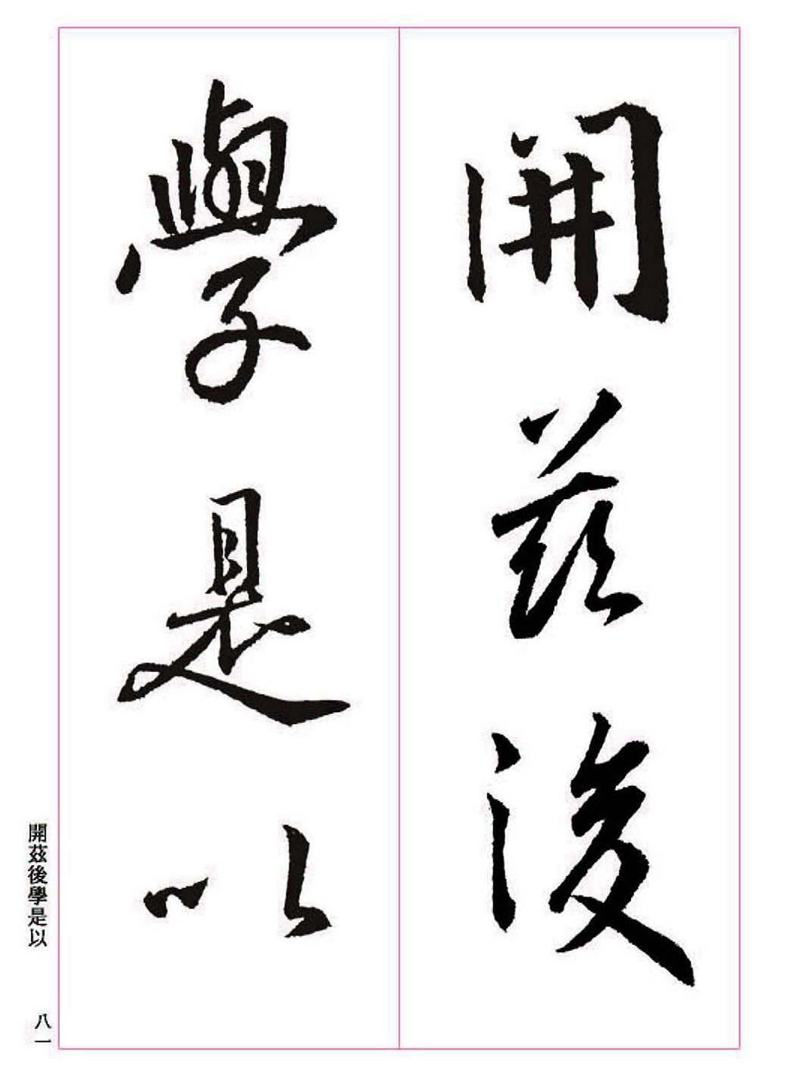 開茲後
學是以
開茲後學是以
八一